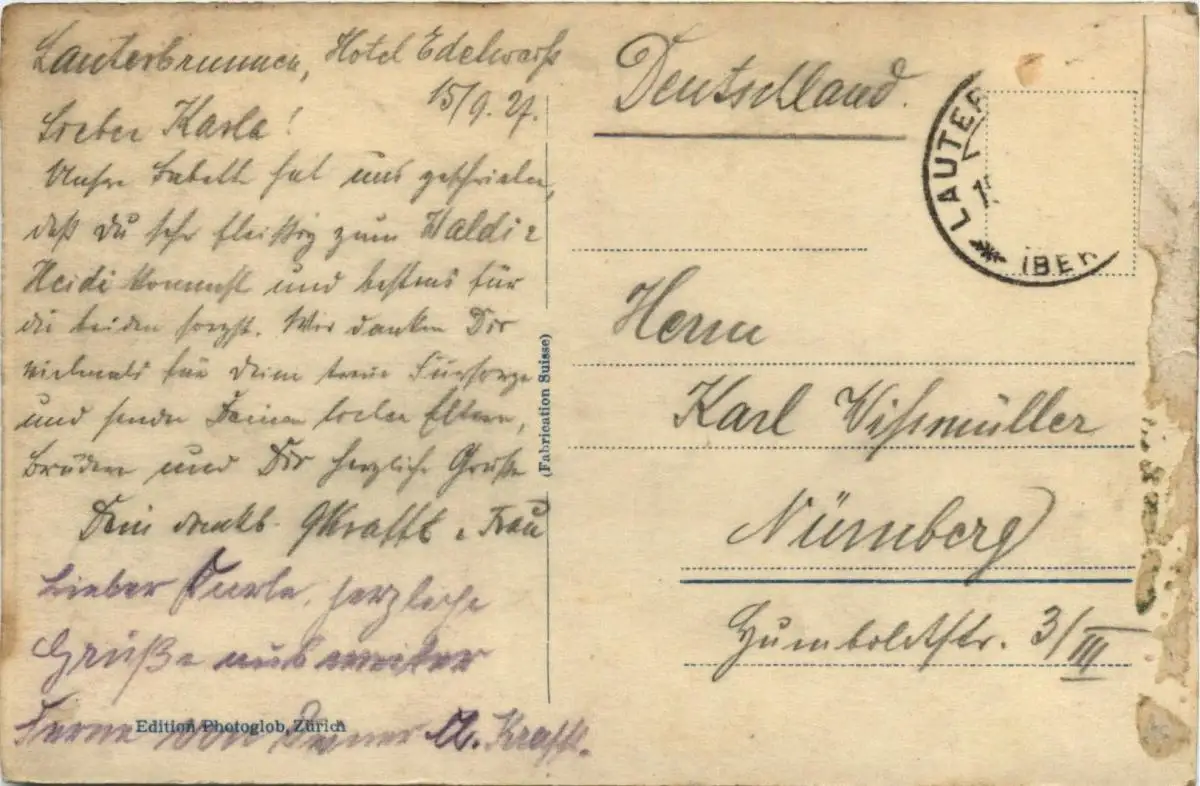 Lauterbrunnen, Hotel Edelweiß
15/9. 27.
Lieber Karle!
Unsre Babett hat uns geschrieben,
daß Du sehr fleißig zum Waldi u
Heidi kommst und bestens für
die beiden sorgst. Wir danken Dir
vielmals für Deine treue Fürsorge
und senden Deinen lieben Eltern,
Brüdern und Dir herzliche Grüße
Dein dankb. GKrafft u Frau
Lieber Karle, herzliche
Grüße aus weiter
Ferne von Deiner A. Krafft.
Edition Photoglob, Zürich
(Fabrication Suisse)
Deutschland.
LAUTER
IBER
Herrn
Karl Wißmüller
Nürnberg
Humboldtstr. 3/III